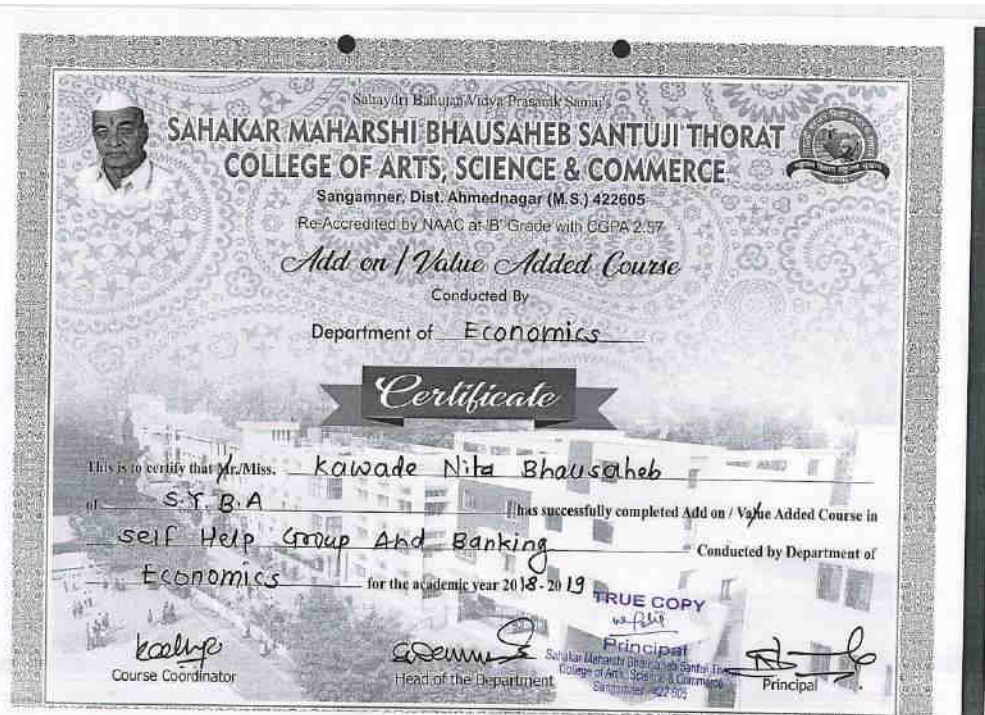 Sahaydri Bahujan Vidya Prasarak Samaj's
SAHAKAR MAHARSHI BHAUSAHEB SANTUJI THORAT
COLLEGE OF ARTS, SCIENCE & COMMERCE
Sangamner, Dist. Ahmednagar (M.S.) 422605
Re-Accredited by NAAC at 'B' Grade with CGPA 2.57
Add on / Value Added Course
Conducted By
Department of Economics
Certificate
This is to certify that Mr./Miss. Kawade Nita Bhausaheb
of S.Y.B.A has successfully completed Add on / Value Added Course in
Self Help Group And Banking Conducted by Department of
Economics for the academic year 2018-2019
TRUE COPY
Principal
Sahakar Maharshi Bhausaheb Santuji
College of Arts, Science & Commerce
Sangamner - 422 605
Course Coordinator
Head of the Department
Principal